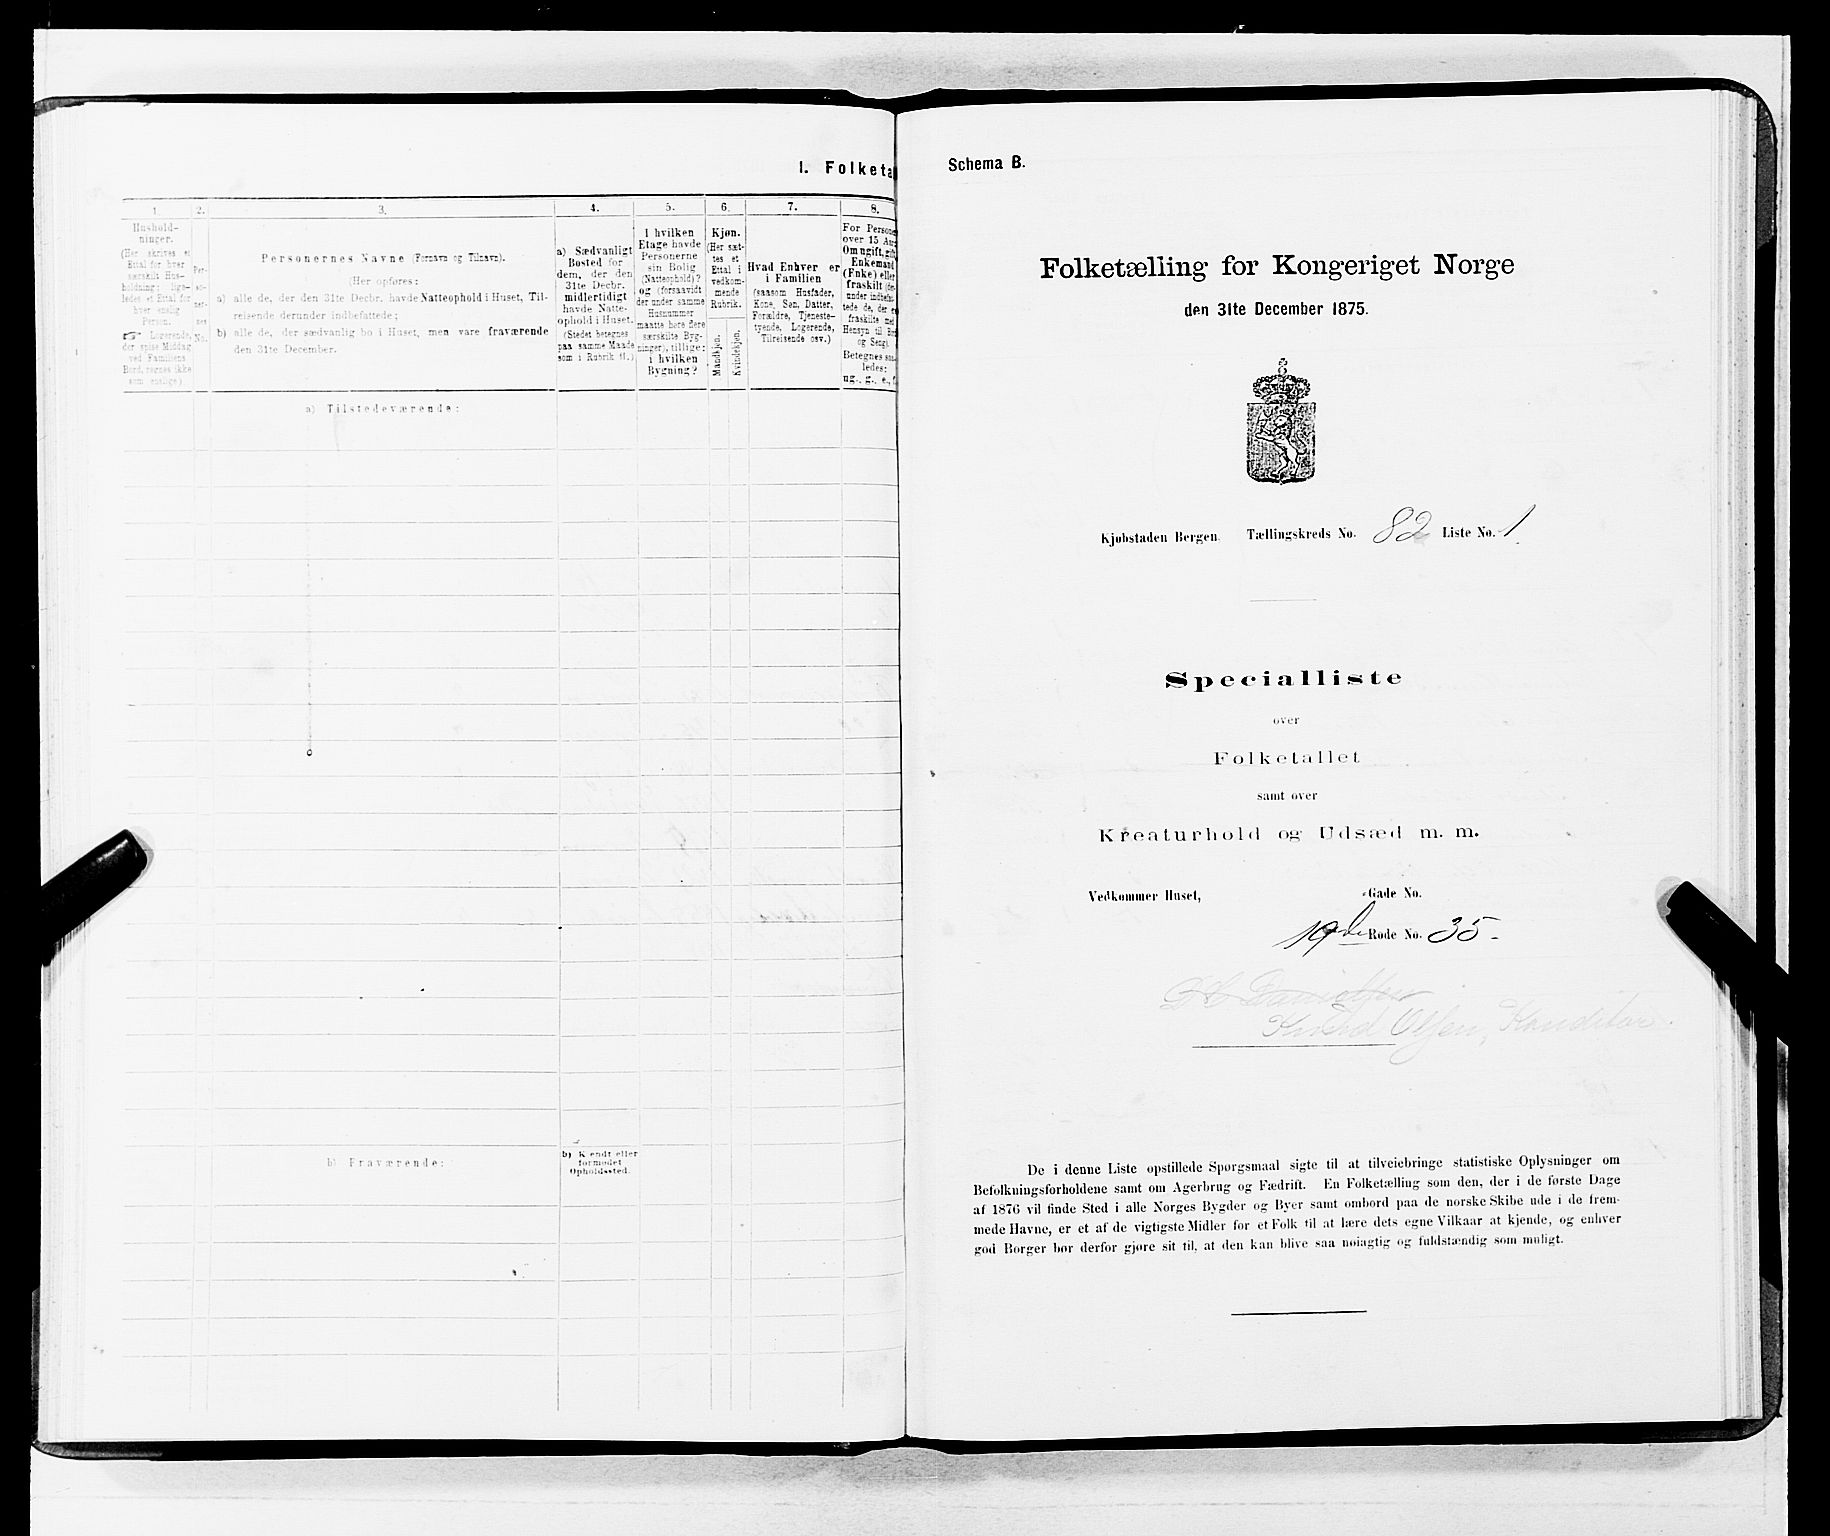 I. Folketa
1.
2.
3.
4.
5.
6.
7.
8.
Hushold-
ninger.
(Her skrives et
Ettal for hver
særskilt Hus-
holdning; lige-
ledes et Ettal for
hver enslig
Person.
☞ Logerende,
der spise Middag
ved Familiens
Bord, regnes ikke
som enslige)
Per-
so-
ner-
nes
No.
Personernes Navne (Fornavn og Tilnavn).
(Her opføres:
a) alle de, der den 31te Decbr. havde Natteophold i Huset, Til-
reisende derunder indbefattede;
b) alle de, der sædvanlig bo i Huset, men vare fraværende
den 31te December.
a) Sædvanligt
Bosted for
dem, der den
31te Decbr.
midlertidigt
havde Natte-
ophold i Huset.
(Stedet betegnes
paa samme Maade
som i Rubrik 11.)
I hvilken
Etage havde
Personerne
sin Bolig
(Natteophold)?
og (forsaavidt
der under samme
Husnummer
maatte høre flere
særskilte Byg-
ninger), tillige:
i hvilken
Bygning?
Kjøn.
(Her sæt-
tes et
Ettal i
vedkom-
mende
Rubrik.
Mandkjøn.
Kvindekjøn.
Hvad Enhver er
i Familien
(saasom Husfader,
Kone, Søn, Datter,
Forældre, Tjeneste-
tyende, Logerende,
Tilreisende osv.)
For Persone
over 15 Aar:
Om ugift, gift,
Enkemand
(Enke) eller
fraskilt (de-
under indbefat-
tede de, der e
fraskilte med
Hensyn til Bor
og Seng).
Betegnes saa-
ledes:
ug., g., e., f.
a) Tilstedeværende:
b) Fraværende:
b) Kjendt eller
formodet
Opholdssted.
Schema B.
Folketælling for Kongeriget Norge
den 31te December 1875.
Kjøbstaden Bergen. Tællingskreds No. 82 Liste No. 1.
Specialliste
over
Folketallet
samt over
Kreaturhold og Udsæd m. m.
Vedkommer Huset, Gade No.
19de Rode No. 35.
Danielsen
Olsen, Konditor.
De i denne Liste opstillede Spørgsmaal sigte til at tilveiebringe statistiske Oplysninger om
Befolkningsforholdene samt om Agerbrug og Fædrift. En Folketælling som den, der i de første Dage
af 1876 vil finde Sted i alle Norges Bygder og Byer samt ombord paa de norske Skibe ude i de frem-
mede Havne, er et af de vigtigste Midler for et Folk til at lære dets egne Vilkaar at kjende, og enhver
god Borger bør derfor gjøre sit til, at den kan blive saa nøiagtig og fuldstændig som muligt.